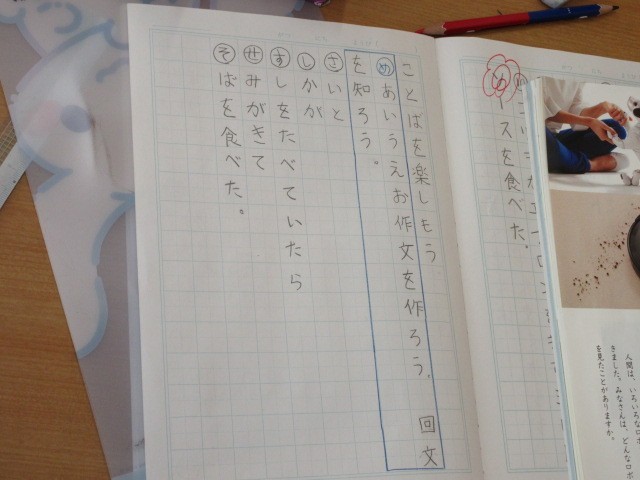 人間は、いろいろなロボ
きました。みなさんは、どんなロボ
を見たことがありますか。
スを食べた。
ことばを楽しもう
めあいうえお作文を作ろう。 回文
を知ろう。
さいと
しかが
すしをたべていたら
せみがきて
そばを食べた。